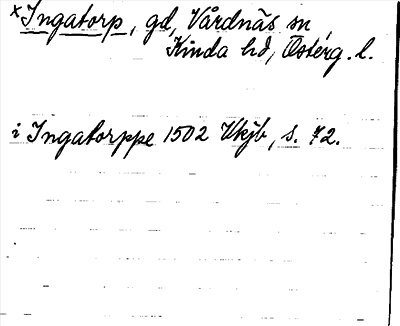 ×Ingatorp, gd, Vårdnäs sn
Kinda hd, Österg. l.
i Ingatorppe 1502 Vkjb, s. 72.